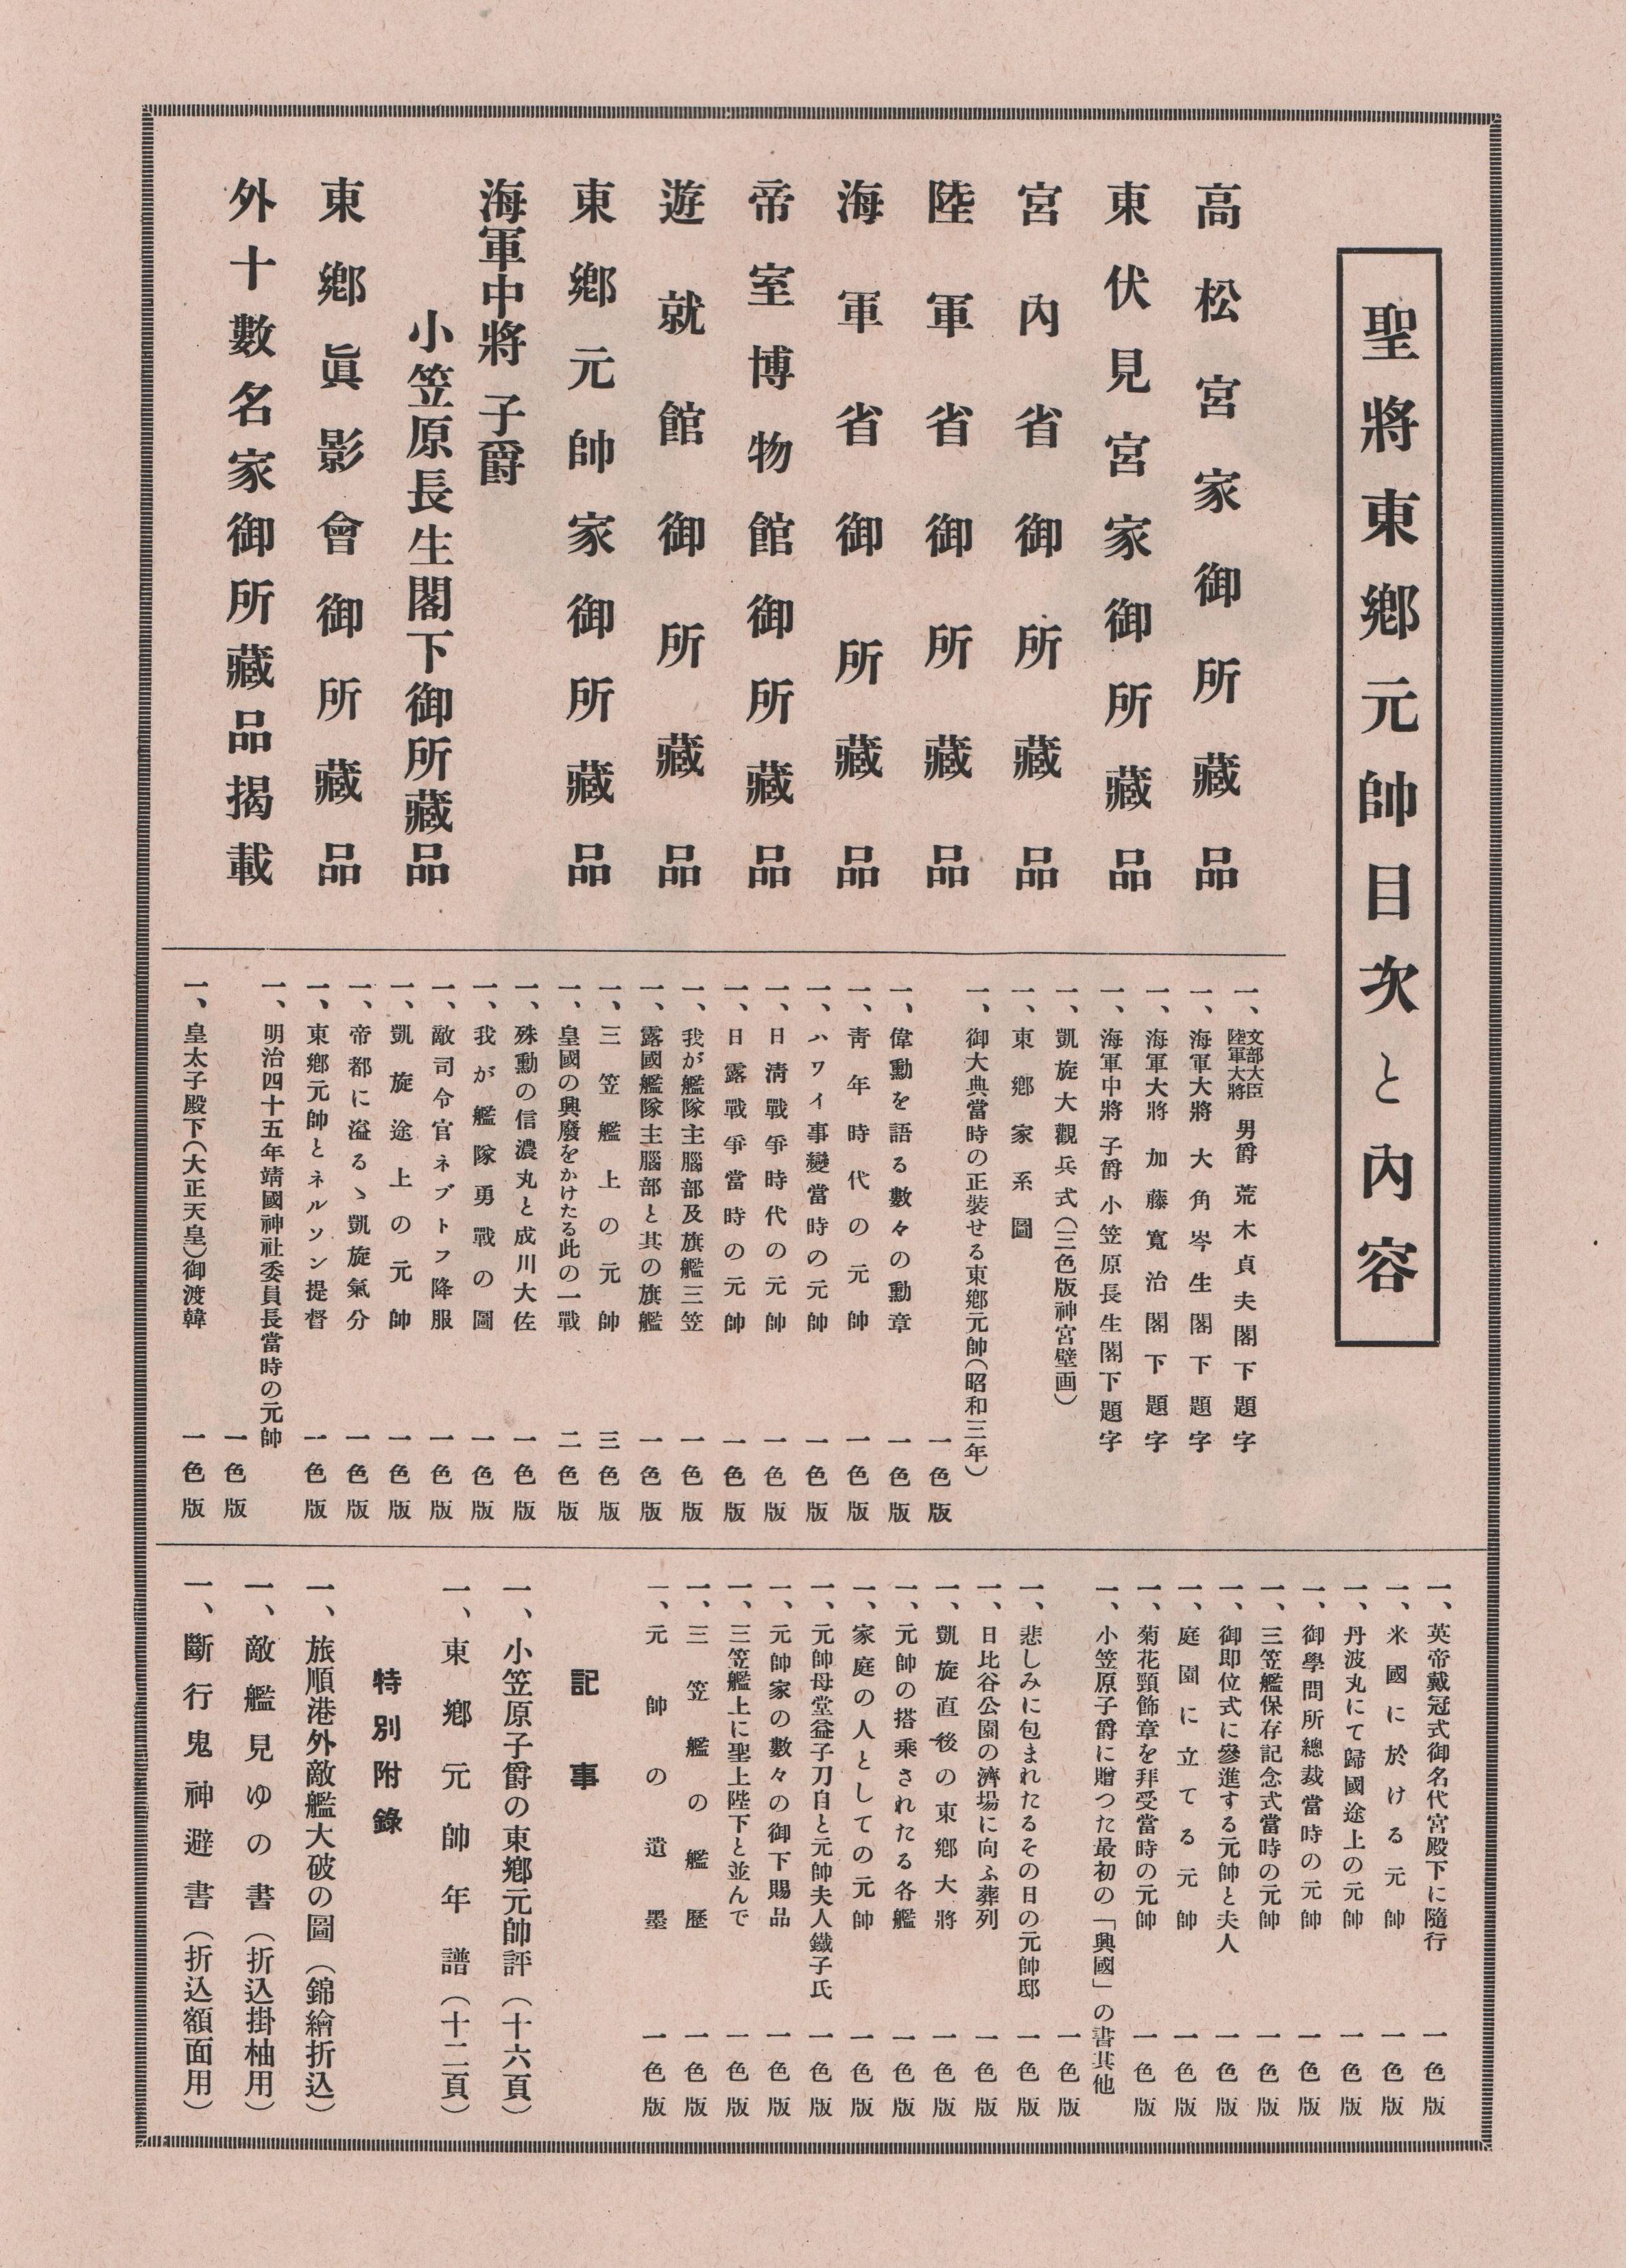 聖將東鄕元帥目次と內容
高松宮家御所藏品
東伏見宮家御所藏品
宮內省御所藏品
陸軍省御所藏品
海軍省御所藏品
帝室博物館御所藏品
遊就館御所藏品
東鄕元帥家御所藏品
海軍中將子爵
小笠原長生閣下御所藏品
東鄕眞影會御所藏品
外十數名家御所藏品揭載
一、文部大臣陸軍大將 男爵 荒木貞夫閣下題字
一、海軍大將 大角岑生閣下題字
一、海軍大將 加藤寬治閣下題字
一、海軍中將 子爵 小笠原長生閣下題字
一、凱旋大觀兵式(三色版神宮壁画)
一、東鄕家系圖
一、御大典當時の正裝せる東鄕元帥(昭和三年)
一色版
一、偉勳を語る數々の勳章 一色版
一、靑年時代の元帥 一色版
一、ハワイ事變當時の元帥 一色版
一、日淸戰爭時代の元帥 一色版
一、日露戰爭當時の元帥 一色版
一、我が艦隊主腦部及旗艦三笠 一色版
一、露國艦隊主腦部と其の旗艦 一色版
一、三笠艦上の元帥 三色版
一、皇國の興廢をかけたる此の一戰 二色版
一、殊勳の信濃丸と成川大佐 一色版
一、我が艦隊勇戰の圖 一色版
一、敵司令官ネブトフ降服 一色版
一、凱旋途上の元帥 一色版
一、帝都に溢るゝ凱旋氣分 一色版
一、東鄕元帥とネルソン提督 一色版
一、明治四十五年靖國神社委員長當時の元帥
一色版
一、皇太子殿下(大正天皇)御渡韓 一色版
一、英帝戴冠式御名代宮殿下に隨行 一色版
一、米國に於ける元帥 一色版
一、丹波丸にて歸國途上の元帥 一色版
一、御學問所總裁當時の元帥 一色版
一、三笠艦保存記念式當時の元帥 一色版
一、御卽位式に參進する元帥と夫人 一色版
一、庭園に立てる元帥 一色版
一、菊花頸飾章を拜受當時の元帥 一色版
一、小笠原子爵に贈つた最初の「興國」の書其他
一色版
一、悲しみに包まれたるその日の元帥邸 一色版
一、日比谷公園の濟場に向ふ葬列 一色版
一、凱旋直後の東鄕大將 一色版
一、元帥の搭乘されたる各艦 一色版
一、家庭の人としての元帥 一色版
一、元帥母堂益子刀自と元帥夫人鐵子氏 一色版
一、元帥家の數々の御下賜品 一色版
一、三笠艦上に聖上陛下と並んで 一色版
一、三笠艦の艦歷 一色版
一、元帥の遺墨 一色版
記事
一、小笠原子爵の東鄕元帥評(十六頁)
一、東鄕元帥年譜(十二頁)
特別附錄
一、旅順港外敵艦大破の圖(錦繪折込)
一、敵艦見ゆの書(折込掛柚用)
一、斷行鬼神避書(折込額面用)